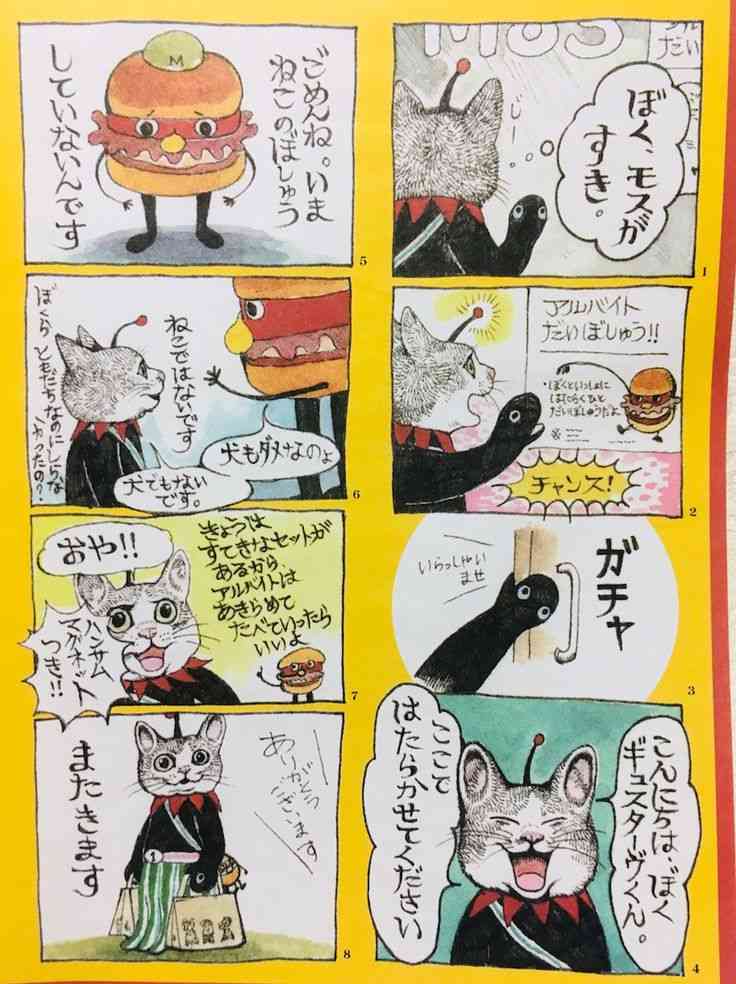 MOS
だい
ぼく、モスが
すき。
じー
1
アルバイト
だいぼしゅう!!
・ぼくといっしょに
はたらくひと
だいぼしゅうだよ
チャンス!
2
ガチャ
いらっしゃい
ませ
3
こんにちは、ぼく
ギュスターヴくん。
ここで
はたらかせてください
4
ごめんね。いま
ねこのぼしゅう
していないんです
M
5
ねこではないです
犬もダメなのよ
犬でもない
です。
ぼくらともだちなのにしらな
かったの?
6
きょうは
すてきなセットが
あるから、
アルバイトは
あきらめて
たべていったら
いいよ
おや!!
ハンサム
マグネット
つき!!
7
ありがとう
ございます
またきます
1
8